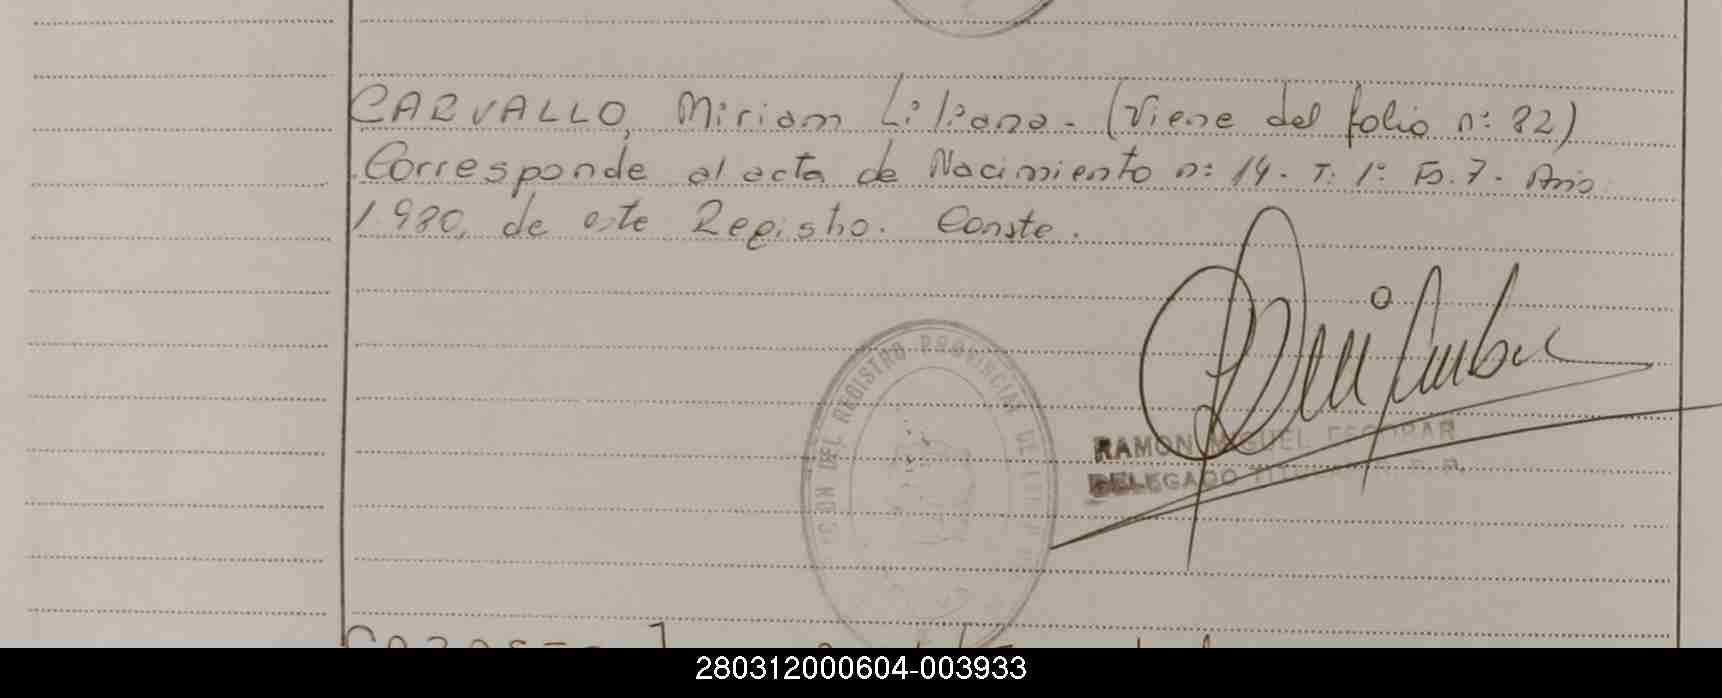 CARVALLO, Miriam Liliana - (Viene del folio nº 82)
Corresponde al acta de Nacimiento nº 14 - T. 1º Fº. 7 - Año
1.980, de este Registro. Conste.
DEL REGISTRO PROVINCIAL DE
RAMON MIGUEL ESCOBAR
DELEGADO
280312000604-003933